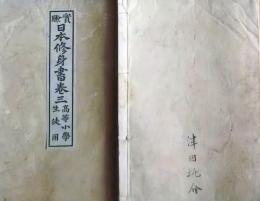 實驗
日本修身書卷三
高等小學
生徒用
津田